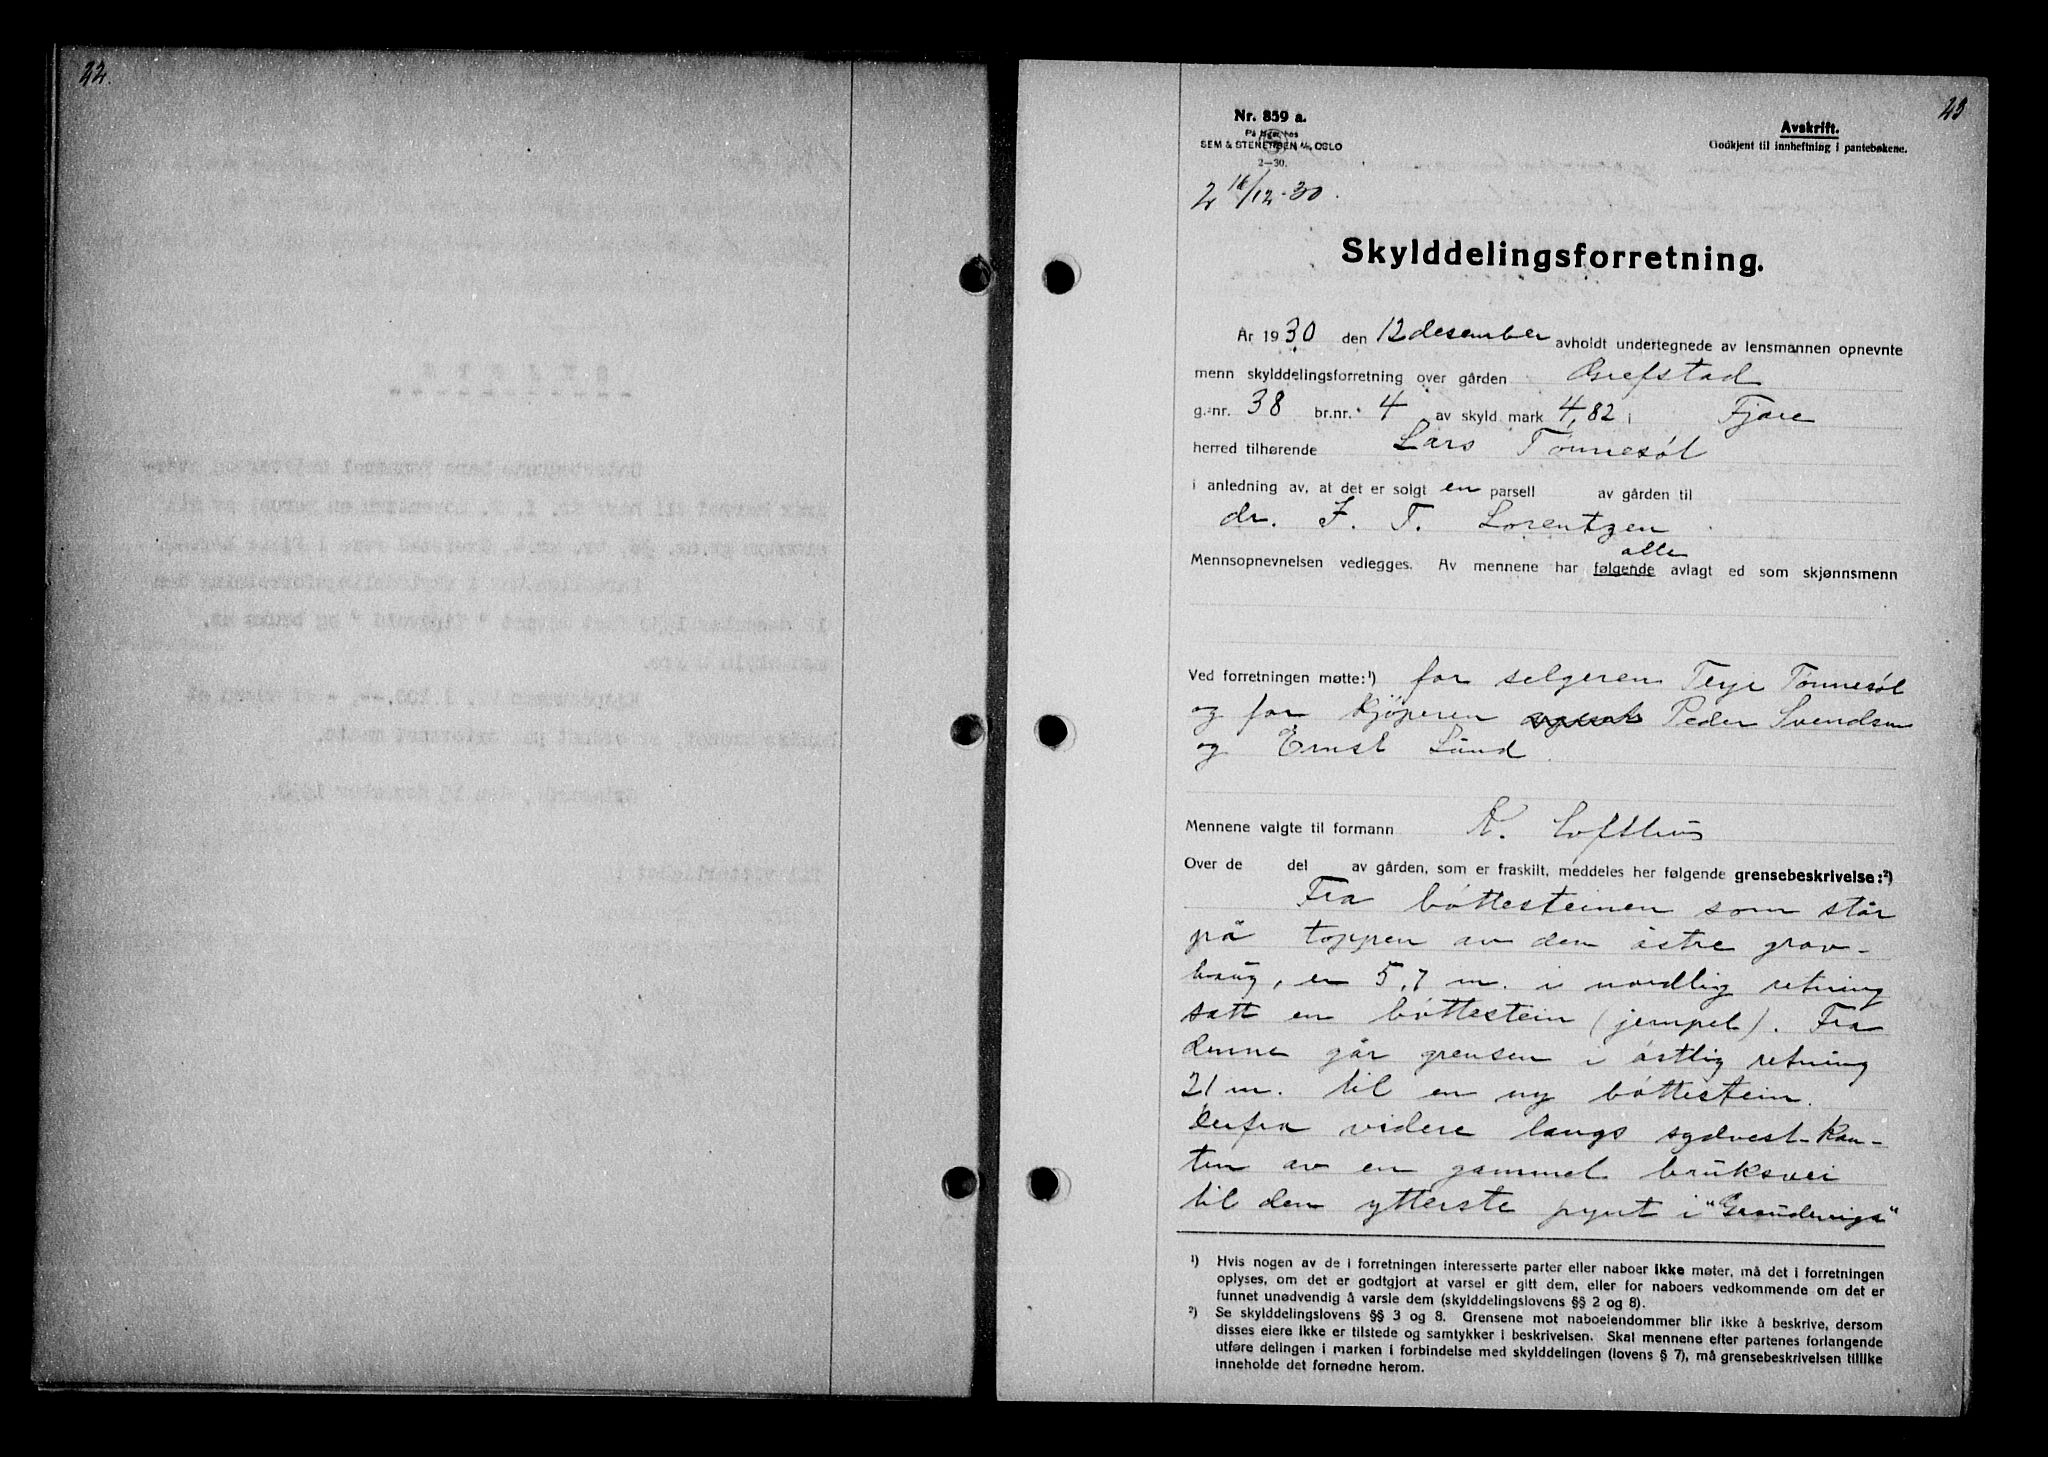 22.
23
Nr. 859 a.
På lager hos
SEM & STENERSEN A/S, OSLO
2—30.
Avskrift.
Godkjent til innheftning i pantebøkene.
2 16/12-30.
Skylddelingsforretning.
År 1930 den 12 desember avholdt undertegnede av lensmannen opnevnte
menn skylddelingsforretning over gården Grefstad
g.-nr. 38 br.nr. 4 av skyld mark 4,82 i Fjære
herred tilhørende Lars Tønnesøl
i anledning av, at det er solgt en parsell av gården til
dr. J. T. Lorentzen
alle
Mennsopnevnelsen vedlegges. Av mennene har følgende avlagt ed som skjønnsmenn
Ved forretningen møtte:¹) for selgeren Terje Tønnesøl
og for kjøperen Peder Svendsen
og Ernst Lund.
Mennene valgte til formann N. Lofthus
Over de del av gården, som er fraskilt, meddeles her følgende grensebeskrivelse:²)
Fra bøttesteinen som står
på toppen av den østre grav-
haug, er 5,7 m. i nordlig retning
satt en bøttestein (jempel). Fra
denne går grensen i østlig retning
21 m. til en ny bøttestein.
Derfra videre langs sydvest-kan-
ten av en gammel bruksvei
til den ytterste pynt i
¹) Hvis nogen av de i forretningen interesserte parter eller naboer ikke møter, må det i forretningen
oplyses, om det er godtgjort at varsel er gitt dem, eller for naboers vedkommende om det er
funnet unødvendig å varsle dem (skylddelingslovens §§ 2 og 8).
²) Se skylddelingslovens §§ 3 og 8. Grensene mot naboeiendommer blir ikke å beskrive, dersom
disses eiere ikke er tilstede og samtykker i beskrivelsen. Skal mennene efter partenes forlangende
utføre delingen i marken i forbindelse med skylddelingen (lovens § 7), må grensebeskrivelsen tillike
inneholde det fornødne herom.